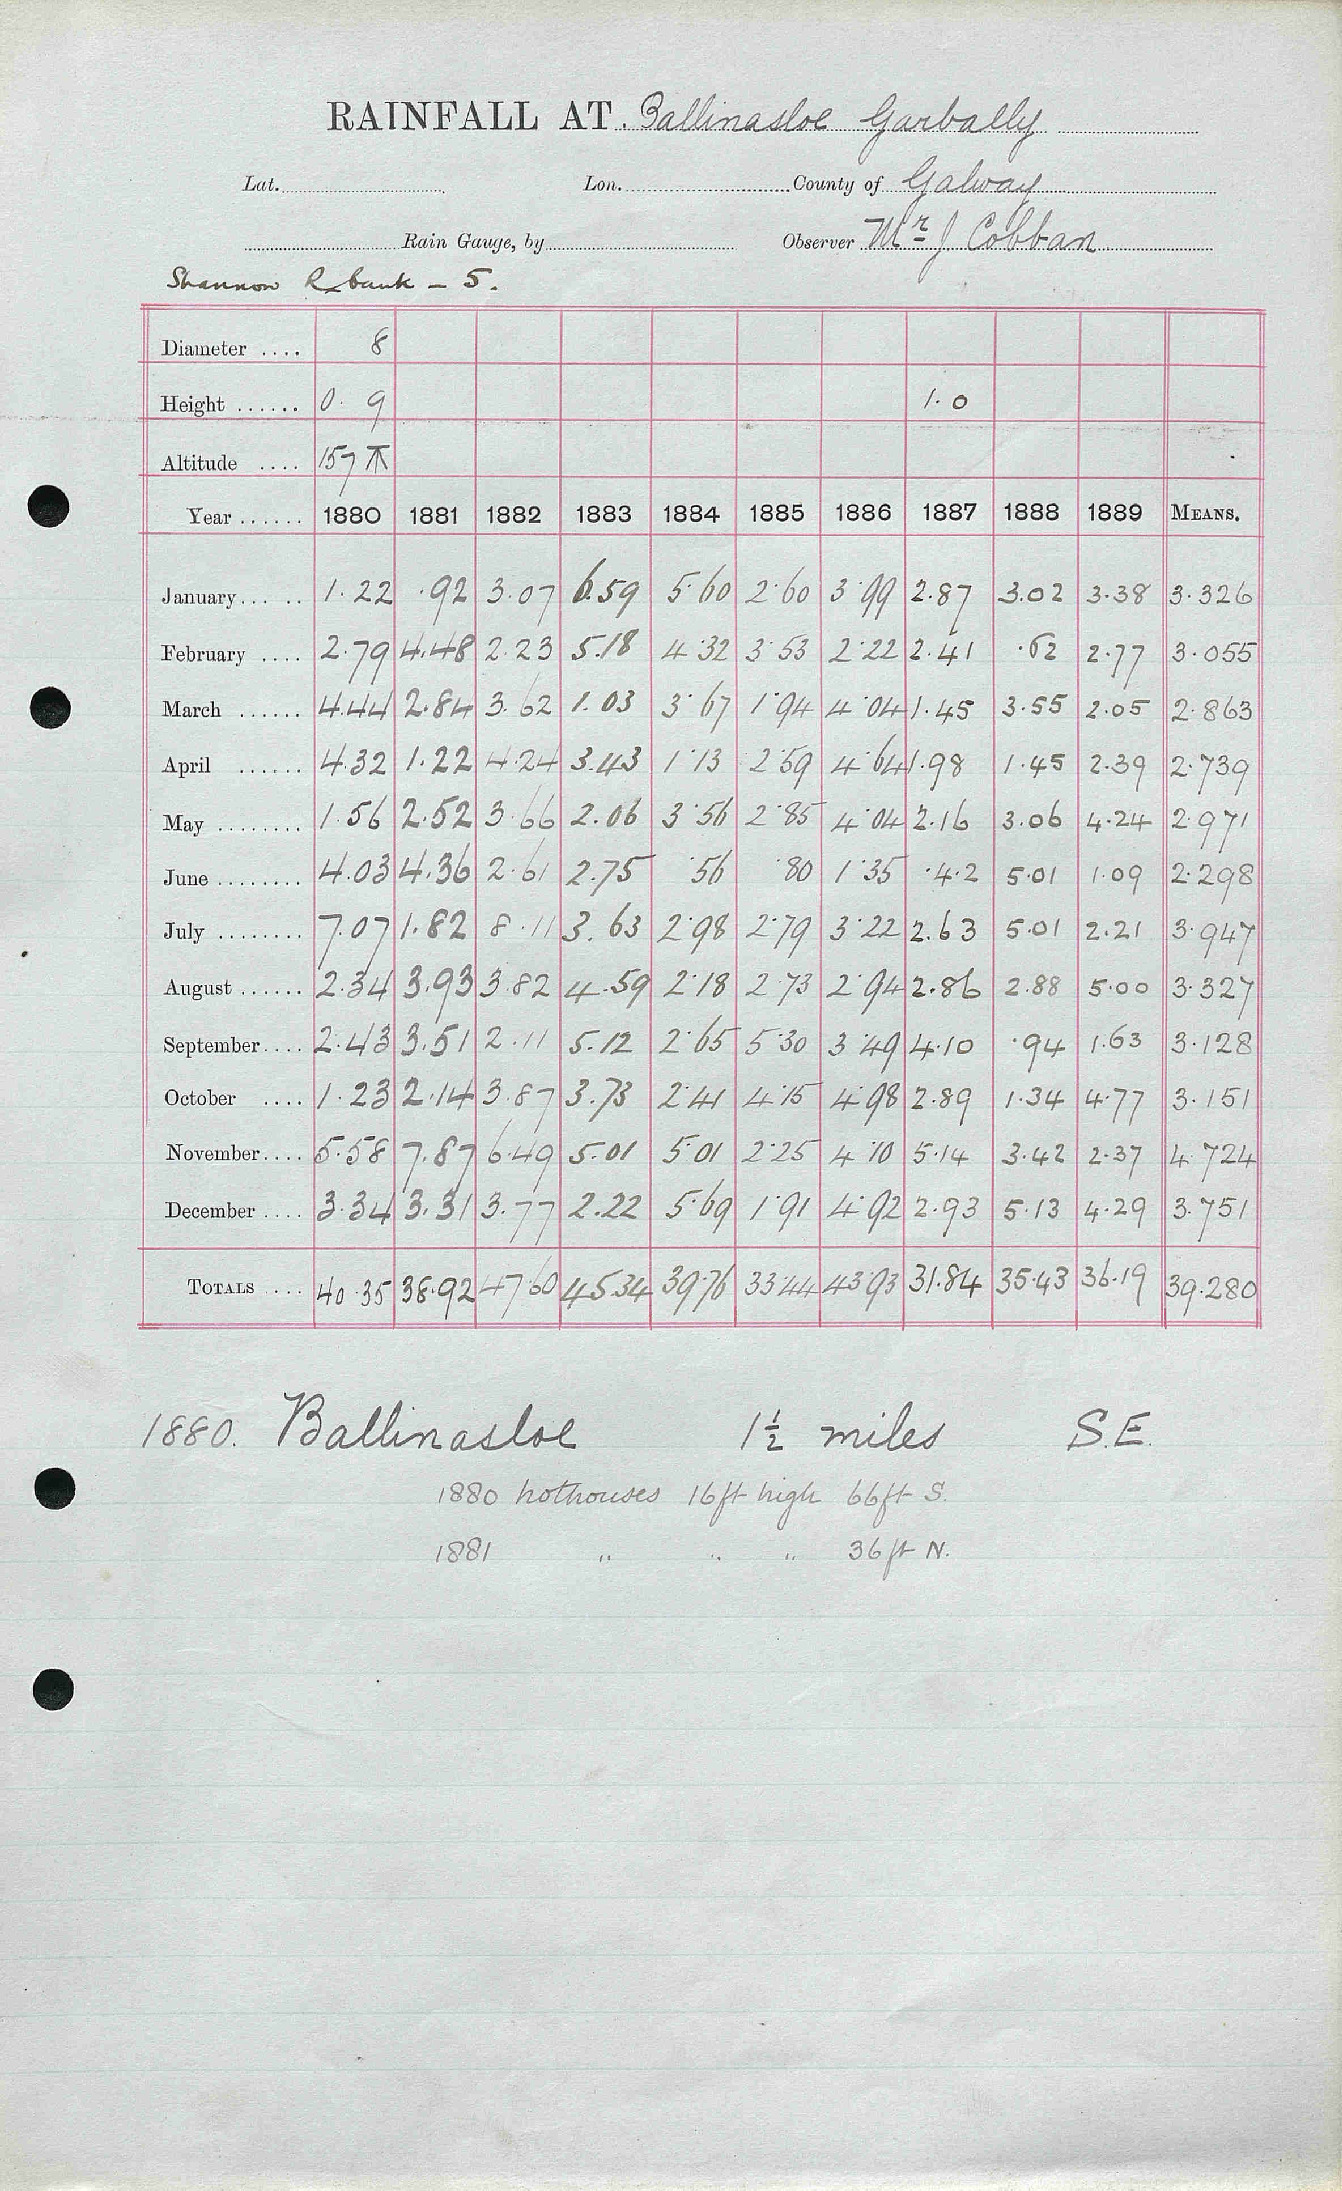 RAINFALL AT Ballinasloe Garbally
Lat. Lon. County of Galway
Rain Gauge, by Observer Mr J Cobban
Shannon R bank – 5.
Diameter .... 8
Height ...... 0. 9 1. 0
Altitude .... 157
Year ...... 1880 1881 1882 1883 1884 1885 1886 1887 1888 1889 MEANS.
January... .. 1.22 .92 3.07 6.59 5.60 2.60 3.99 2.87 3.02 3.38 3.326
February .... 2.79 4.48 2.23 5.18 4.32 3.53 2.22 2.41 .62 2.77 3.055
March ...... 4.44 2.84 3.62 1.03 3.67 1.94 4.04 1.45 3.55 2.05 2.863
April ...... 4.32 1.22 4.24 3.43 1.13 2.59 4.64 1.98 1.45 2.39 2.739
May ........ 1.56 2.52 3.66 2.06 3.56 2.85 4.04 2.16 3.06 4.24 2.971
June ........ 4.03 4.36 2.61 2.75 .56 .80 1.35 .42 5.01 1.09 2.298
July ........ 7.07 1.82 8.11 3.63 2.98 2.79 3.22 2.63 5.01 2.21 3.947
August ...... 2.34 3.93 3.82 4.59 2.18 2.73 2.94 2.86 2.88 5.00 3.327
September.... 2.43 3.51 2.11 5.12 2.65 5.30 3.49 4.10 .94 1.63 3.128
October .... 1.23 2.14 3.87 3.73 2.41 4.15 4.98 2.89 1.34 4.77 3.151
November.... 5.58 7.87 6.49 5.01 5.01 2.25 4.10 5.14 3.42 2.37 4.724
December .... 3.34 3.31 3.77 2.22 5.69 1.91 4.92 2.93 5.13 4.29 3.751
TOTALS ... 40.35 38.92 47.60 45.34 39.76 33.44 43.93 31.84 35.43 36.19 39.280
1880. Ballinasloe 1½ miles S.E.
1880 hothouses 16ft high 66ft S.
1881 " " " 36ft N.